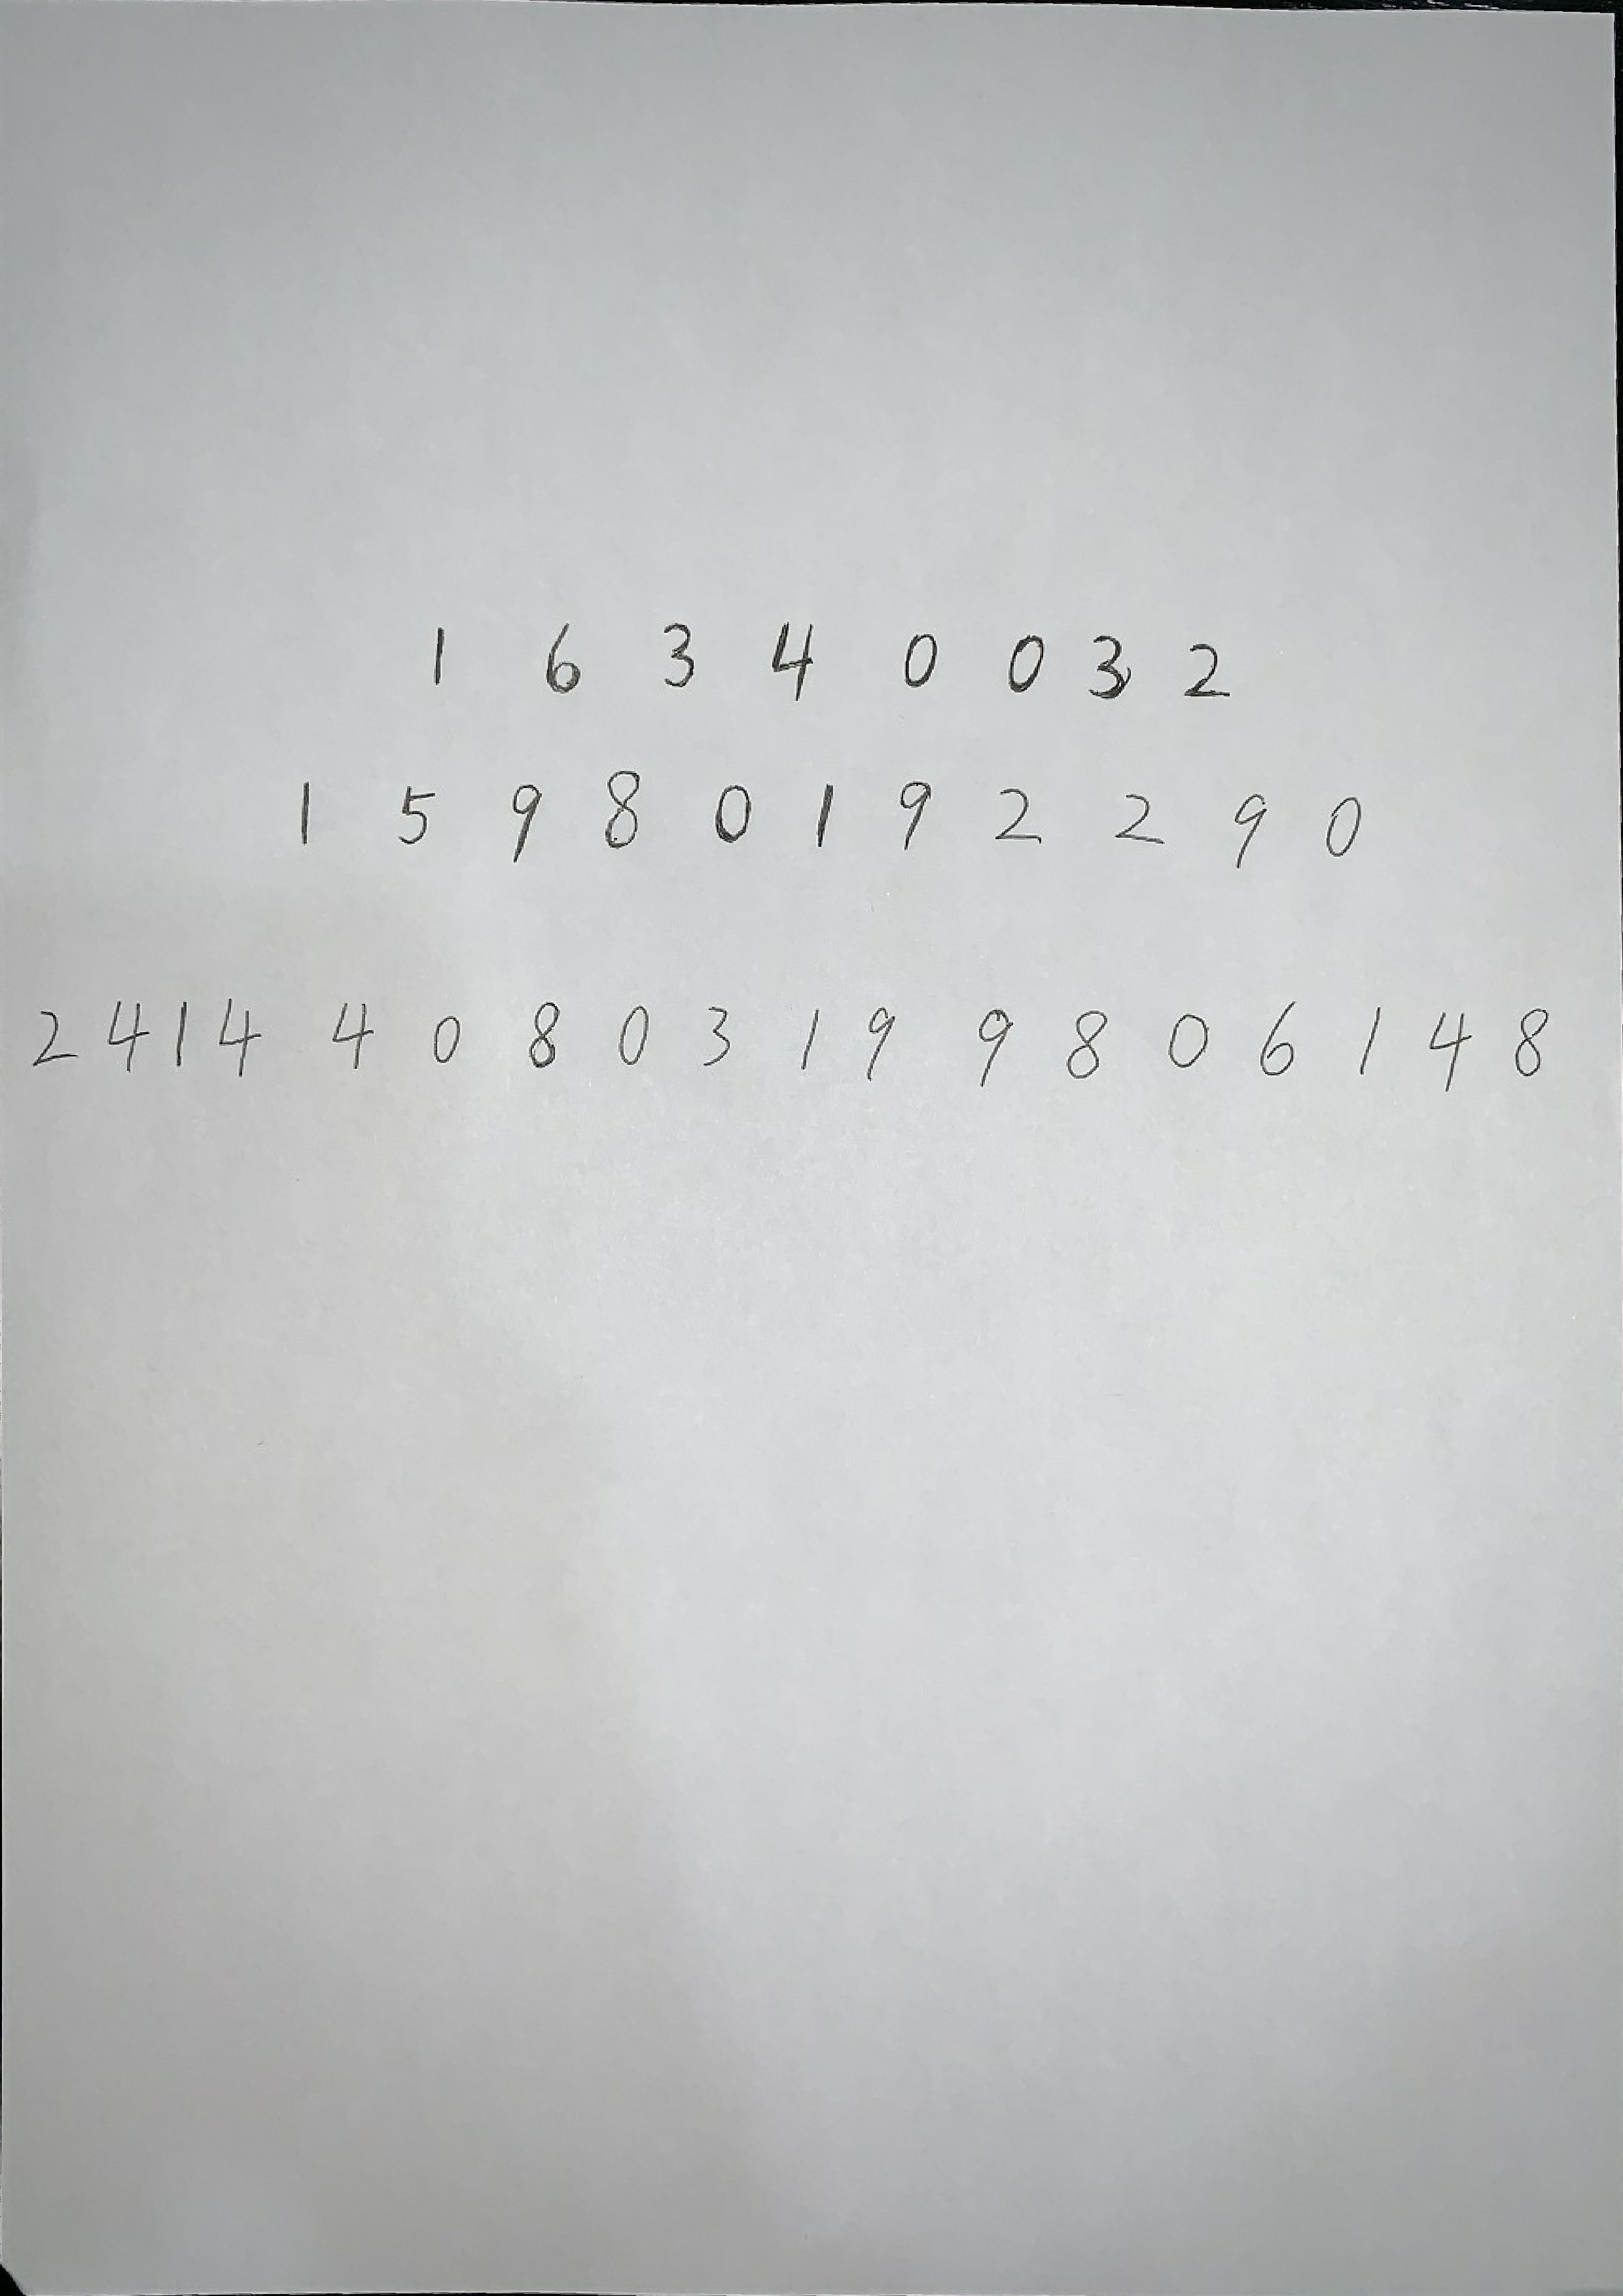 1 6 3 4 0 0 3 2
1 5 9 8 0 1 9 2 2 9 0
2 4 1 4 4 0 8 0 3 1 9 9 8 0 6 1 4 8